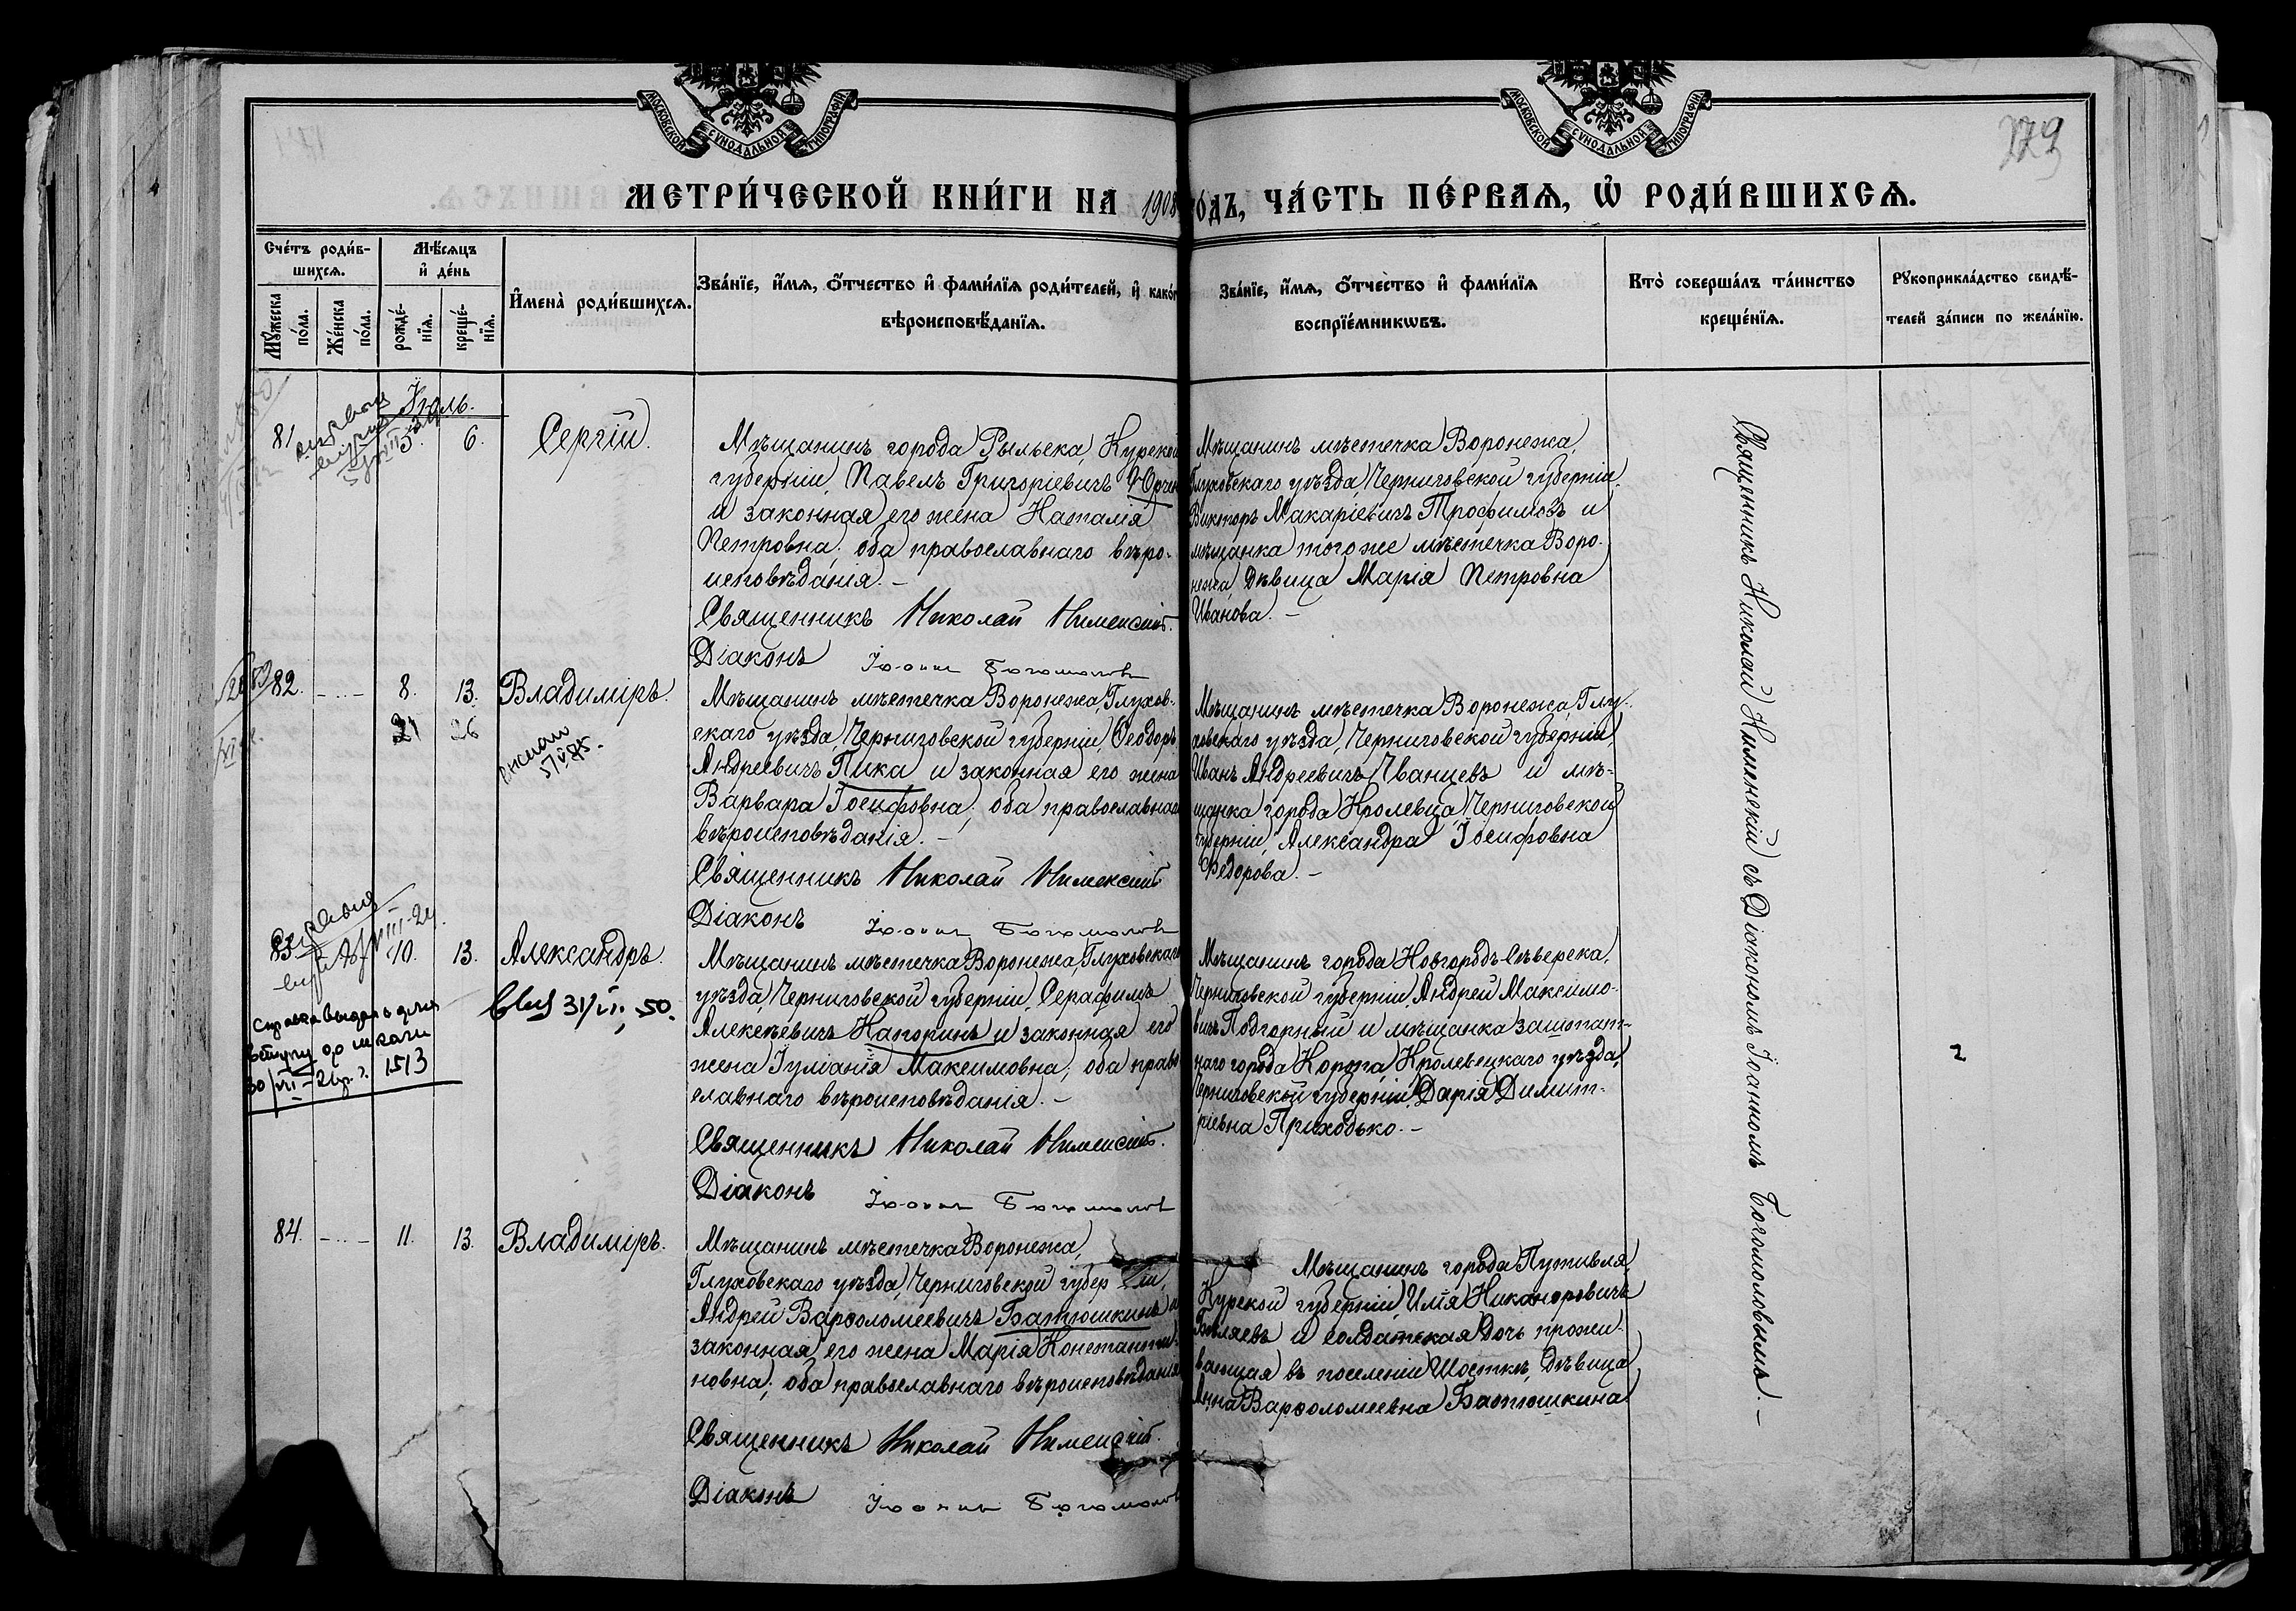 МОСКОВСКОЙ СУНОДАЛЬНОЙ ТИПОГРАФІИ.
МОСКОВСКОЙ СУНОДАЛЬНОЙ ТИПОГРАФІИ.
179
МЕТРИ́ЧЕСКОЙ КНИ́ГИ НА 1908
ОДЪ, ЧА́СТЬ ПЕ́РВАѦ, Ѡ҆ РОДИ́ВШИХСѦ.
Сче́тъ роди́в-
шихсѧ.
Мꙋ́жеска по́ла.
Же́нска по́ла.
Мѣ́сѧцъ
и҆ де́нь
рожде́-
нїѧ.
креще́-
нїѧ.
И҆мена̀ роди́вшихсѧ.
Зва́нїе, и҆́мѧ, ѻ҆́тчество и҆ фами́лїѧ роди́телей, и҆ како́г
вѣроисповѣ́данїѧ.
Зва́нїе, и҆́мѧ, ѻ҆́тчество и҆ фами́лїѧ
воспрїе́мникѡвъ.
Кто̀ соверша́лъ та́инство
креще́нїѧ.
Рꙋкоприкла́дство свидѣ́-
телей за́писи по жела́нїю.
Іюль.
81
5.
6.
Сергій.
Мѣщанинъ города Рыльска, Курской
губерніи, Павелъ Григоріевичъ
и законная его жена Наталія
Петровна; оба православнаго вѣро-
исповѣданія. –
Священникъ Николай Нименскій.
Діаконъ Іоаннъ Богомоловъ
Мѣщанинъ мѣстечка Воронежа,
Глуховскаго уѣзда, Черниговской губерніи
Викторъ Макаріевичъ Трофимовъ и
мѣщанка того же мѣстечка Воро-
нежа, дѣвица Марія Петровна
Иванова. –
82.
8.
13.
Владиміръ.
21
26
Мѣщанинъ мѣстечка Воронежа, Глухов-
скаго уѣзда, Черниговской губерніи, Ѳеодоръ
Андреевичъ Пика и законная его жена
Варвара Іосифовна; оба православнаго
вѣроисповѣданія. –
Священникъ Николай Нименскій
Діаконъ Іоаннъ Богомоловъ
Мѣщанинъ мѣстечка Воронежа, Глу-
ховскаго уѣзда, Черниговской губерніи,
Иванъ Андреевичъ Иванцевъ и мѣ-
щанка города Кролевца, Черниговской
губерніи, Александра Іосифовна
Федорова. –
83
10.
13.
Александръ.
31/VII, 50.
Справка выдана для
30/VII – 21 г. 1513
Мѣщанинъ мѣстечка Воронежа, Глуховскаго
уѣзда, Черниговской губерніи, Серафимъ
Алексѣевичъ Напоринъ и законная его
жена Іуліанія Максимовна; оба право
славнаго вѣроисповѣданія. –
Священникъ Николай Нименскій.
Діаконъ Іоаннъ Богомоловъ
Мѣщанинъ города Новгородъ-Сѣверска,
Черниговской губерніи Андрей Максимо-
вичъ Подгорный и мѣщанка заштат-
наго города Коропа, Кролевецкаго уѣзда,
Черниговской губерніи, Дарія Димит-
ріевна Приходько. –
2
84.
11.
13.
Владиміръ.
Мѣщанинъ мѣстечка Воронежа,
Глуховскаго уѣзда, Черниговской губер іи,
Андрей Варѳоломеевичъ Батюшкинъ и
законная его жена Марія Константи-
новна; оба православнаго вѣроисповѣданія
Священникъ Николай Нименскій.
Діаконъ Іоаннъ Богомоловъ
Мѣщанинъ города Путивля,
Курской губерніи, Илія Никаноровичъ
и солдатская дочь прожи-
вающая въ поселеніи Шосткѣ, дѣвица
Анна Варѳоломеевна Батюшкина
Священникъ Николай Нименскій съ Діакономъ Іоанномъ Богомоловымъ. –